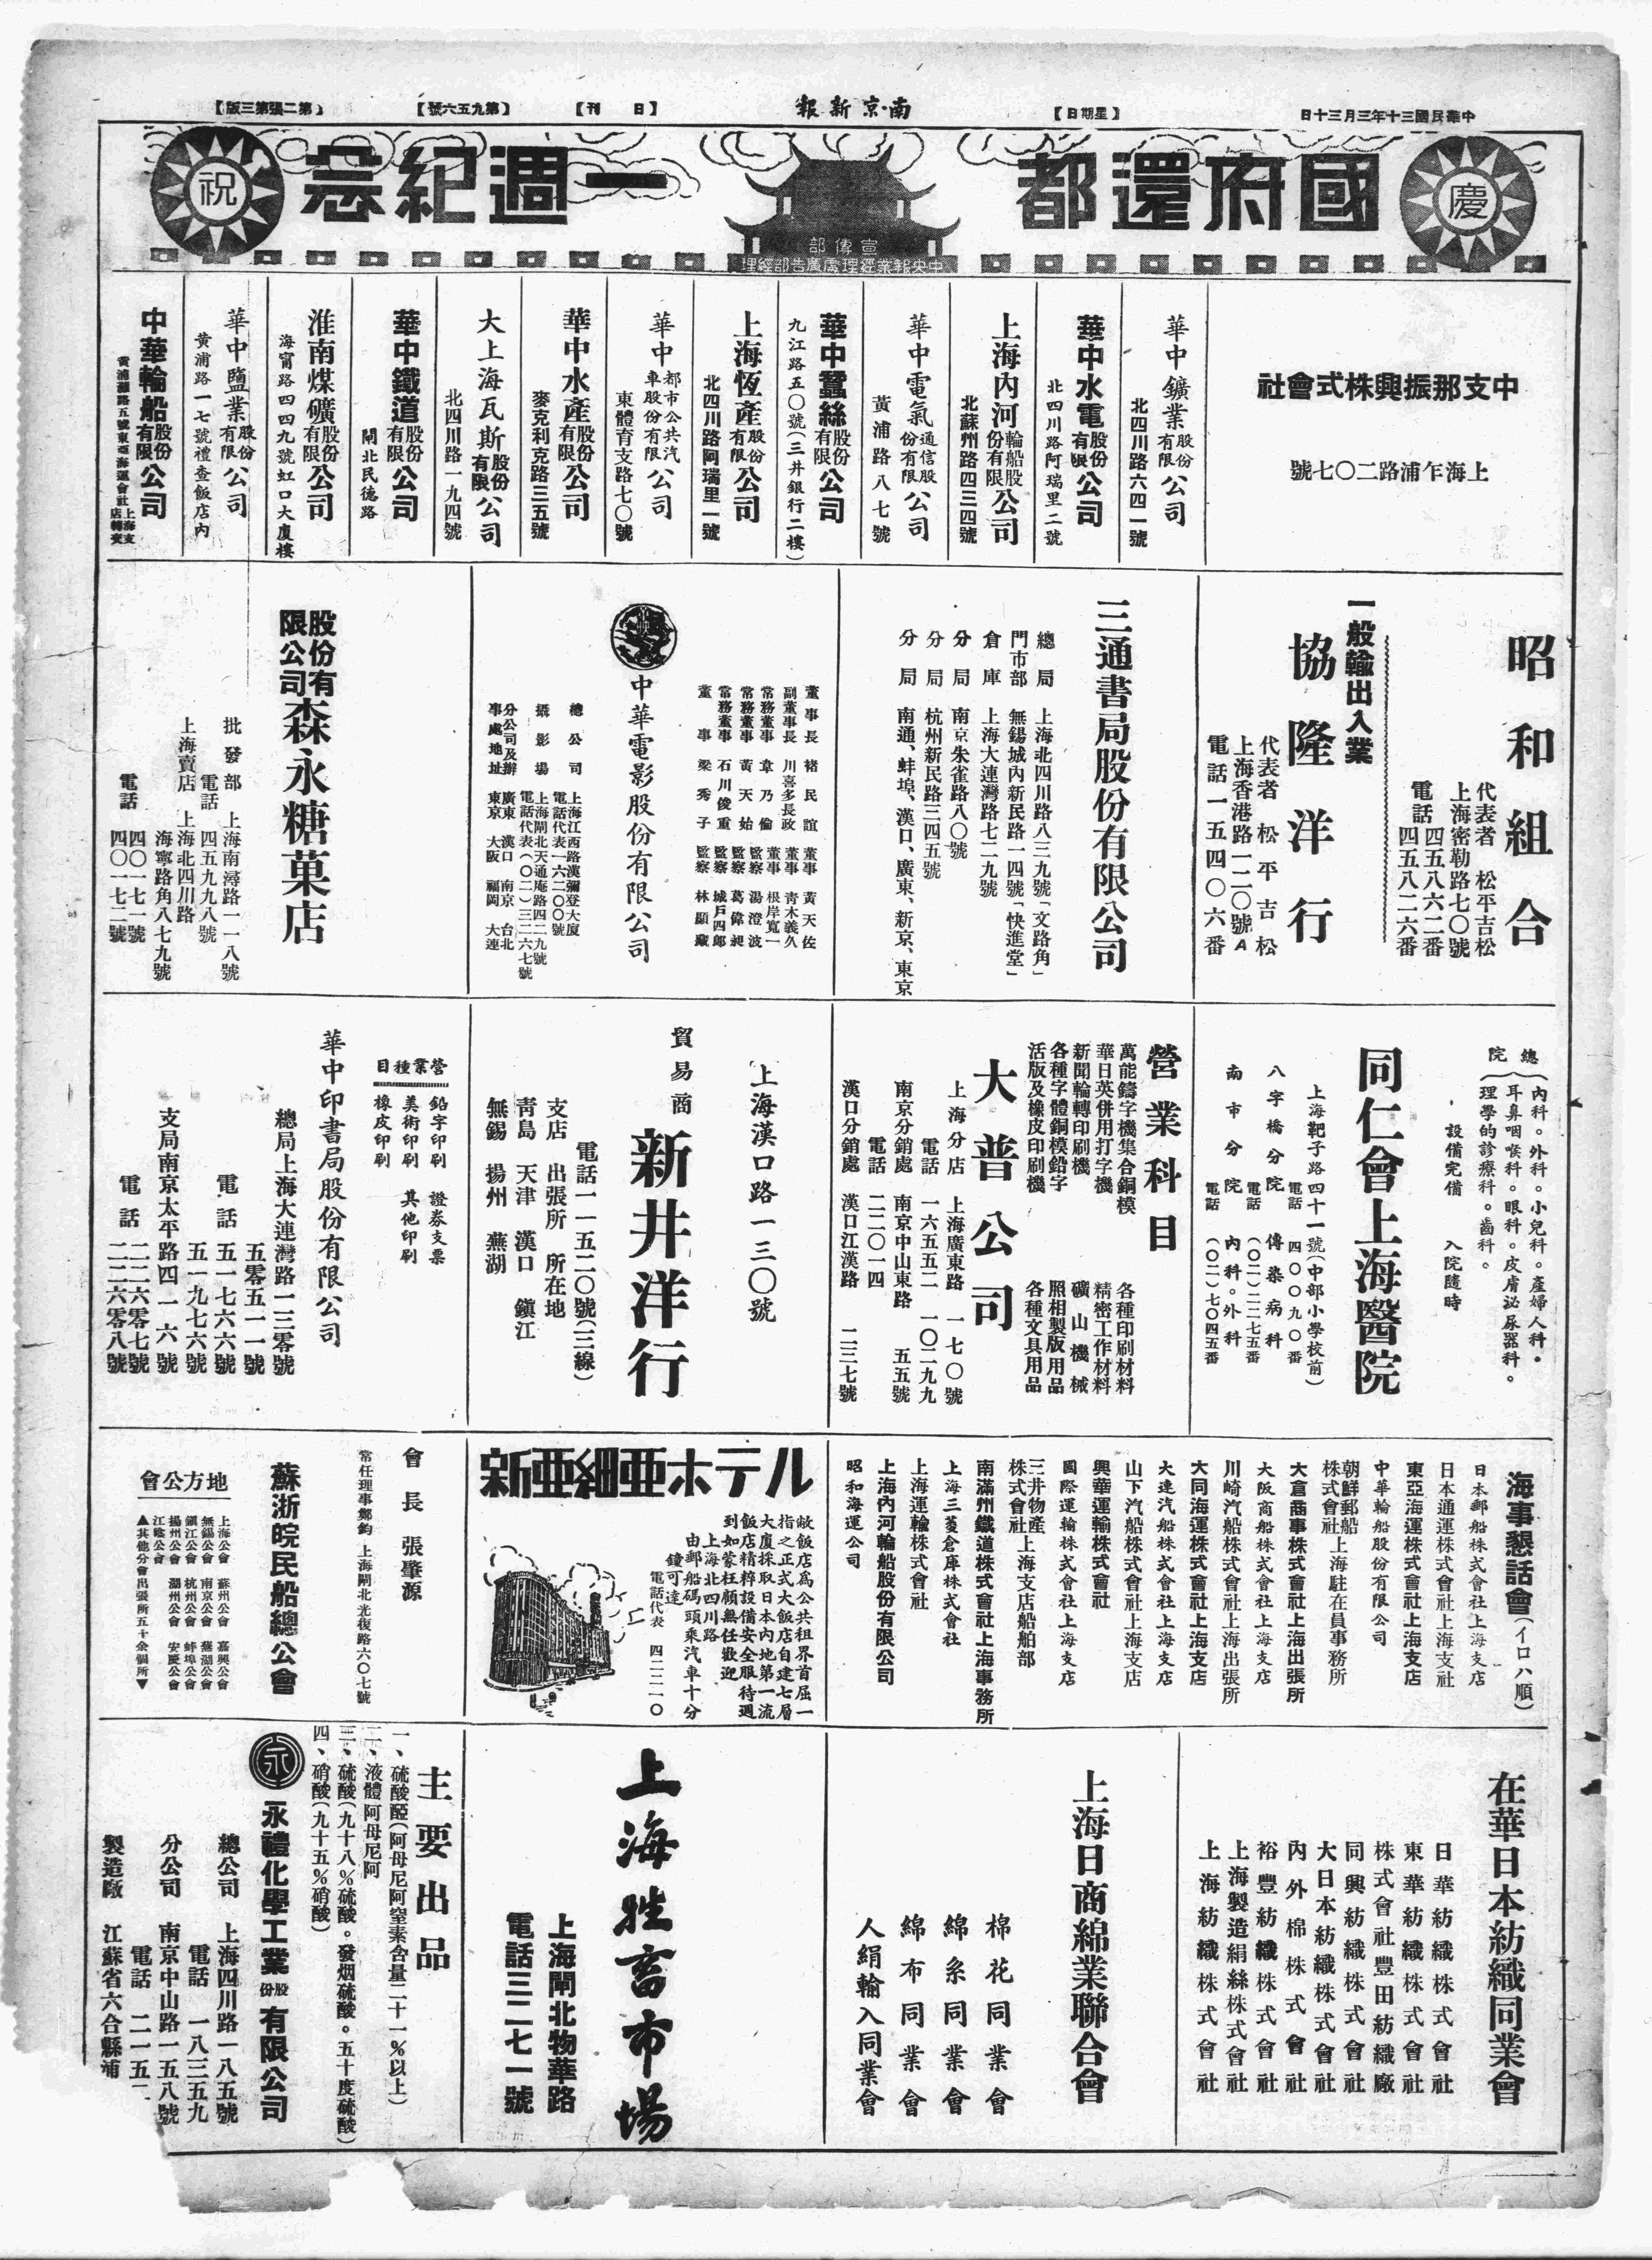 中華民國三十年三月三十日
【星期日】
南京新報
【日刊】
【第九五六號】
【第二張第三版】
慶
國府還都
一週紀念
祝
宣傳部
中央報業經理處廣告部經理
中支那振興株式會社
上海乍浦路二〇七號
華中鑛業股份有限公司
北四川路六四一號
華中水電股份有限公司
北四川路阿瑞里二號
上海內河輪船股份有限公司
北蘇州路四三四號
華中電氣通信股份有限公司
黃浦路八七號
華中蠶絲股份有限公司
九江路五〇號(三井銀行二樓)
上海恆產股份有限公司
北四川路阿瑞里一號
華中都市公共汽車股份有限公司
東體育支路七〇號
華中水產股份有限公司
麥克利克路三五號
大上海瓦斯股份有限公司
北四川路一九四號
華中鐵道股份有限公司
閘北民德路
淮南煤礦股份有限公司
海甯路四四九號虹口大廈樓
華中鹽業股份有限公司
黃浦路一七號禮查飯店內
中華輪船股份有限公司
黃浦灘路五號東亞海運會社上海支店轉交
昭和組合
代表者 松平吉松
上海密勒路七〇號
電話 四五八六二番
四五八二六番
一般輸出入業
協隆洋行
代表者 松平吉松
上海香港路一二〇號A
電話一五四〇六番
三通書局股份有限公司
總局 上海北四川路八三九號「文路角」
門市部 無錫城內新民路一四號「快進堂」
倉庫 上海大連灣路七二九號
分局 南京朱雀路八〇號
分局 杭州新民路三四五號
分局 南通、蚌埠、漢口、廣東、新京、東京
董事長 褚民誼
副董事長 川喜多長政
常務董事 韋乃倫
常務董事 黃天始
常務董事 石川俊重
董事 梁秀子
董事 黃天佐
董事 青木義久
董事 根岸寬一
監察 湯澄波
監察 葛偉昶
監察 城戶四郎
監察 林顯藏
中華電影股份有限公司
總公司 上海江西路漢彌登大廈
電話代表一六二〇〇號
攝影場 上海閘北天通庵路四二九號
電話代表(〇二)三二六七號
分公司及辦事處地址
廣東 漢口 南京 台北
東京 大阪 福岡 大連
股份有限公司森永糖菓店
批發部 上海南潯路一一八號
電話 四五九九八號
上海賣店 上海北四川路
海寧路角八七九號
電話 四〇一七一號
四〇一七二號
總院
內科。外科。小兒科。產婦人科。
耳鼻咽喉科。眼科。皮膚泌尿器科。
理學的診療科。齒科。
設備完備 入院隨時
同仁會上海醫院
上海靶子路四十一號(中部小學校前)
電話 四〇〇九〇番
八字橋分院 傳染病科
電話 (〇二)二二七五番
南市分院 內科。外科
電話 (〇二)七〇四五番
營業科目
萬能鑄字機集合銅模
華日英併用打字機
新聞輪轉印刷機
各種字體銅模鉛字
活版及橡皮印刷機
各種印刷材料
精密工作材料
礦山機械
照相製版用品
各種文具用品
大普公司
上海分店 上海廣東路一七〇號
電話 一六五五二 一〇二九九
南京分銷處 南京中山東路五五號
電話 二二〇一四
漢口分銷處 漢口江漢路二三七號
上海漢口路一三〇號
貿易商 新井洋行
電話一一五二〇號(三線)
支店 出張所 所在地
青島 天津 漢口 鎮江
無錫 揚州 蕪湖
營業種目
鉛字印刷 證券支票
美術印刷 其他印刷
橡皮印刷
華中印書局股份有限公司
總局上海大連灣路一三零號
電話 五零五一一號
五一七六六號
五一九七六號
支局南京太平路四一六號
電話 二二六零七號
二二六零八號
海事懇話會(イロハ順)
日本郵船株式会社上海支店
日本通運株式會社上海支社
東亞海運株式會社上海支店
中華輪船股份有限公司
朝鮮郵船株式會社上海駐在員事務所
大倉商事株式會社上海出張所
大阪商船株式会社上海支店
川崎汽船株式會社上海出張所
大同海運株式會社上海支店
大連汽船株式會社上海支店
山下汽船株式會社上海支店
興華運輸株式會社
國際運輸株式会社上海支店
三井物產株式會社上海支店船舶部
南滿州鐵道株式會社上海事務所
上海三菱倉庫株式會社
上海運輸株式會社
上海內河輪船股份有限公司
昭和海運公司
新亜細亜ホテル
敝飯店爲公共租界首屈一
指之正式大飯店自建七層
大廈採取日本內地第一流
飯店精粹設備安全服待週
到如蒙枉顧無任歡迎
上海北四川路
由郵船碼頭乘汽車十分
鐘可達
電話代表 四二二一〇
會長 張肇源
常任理事鄭鈞 上海閘北光復路六〇七號
蘇浙皖民船總公會
地方公會
上海公會 蘇州公會 嘉興公會
無錫公會 南京公會 蕪湖公會
鎮江公會 杭州公會 蚌埠公會
揚州公會 湖州公會 安慶公會
江陰公會
▲其他分會出張所五十余個所▼
在華日本紡織同業會
日華紡織株式會社
東華紡織株式會社
株式會社豐田紡織廠
同興紡織株式會社
大日本紡織株式會社
內外棉株式會社
裕豐紡織株式會社
上海製造絹絲株式會社
上海紡織株式會社
上海日商綿業聯合會
棉花同業會
綿糸同業會
綿布同業會
人絹輸入同業會
上海牲畜市場
上海閘北物華路
電話三二七一號
主要出品
一、硫酸䤃(阿母尼阿窒素含量二十一%以上)
二、液體阿母尼阿
三、硫酸(九十八%硫酸。發烟硫酸。五十度硫酸)
四、硝酸(九十五%硝酸)
永
永禮化學工業股份有限公司
總公司 上海四川路一八五號
電話 一八三五九
分公司 南京中山路一五八號
電話 二一五
製造廠 江蘇省六合縣浦